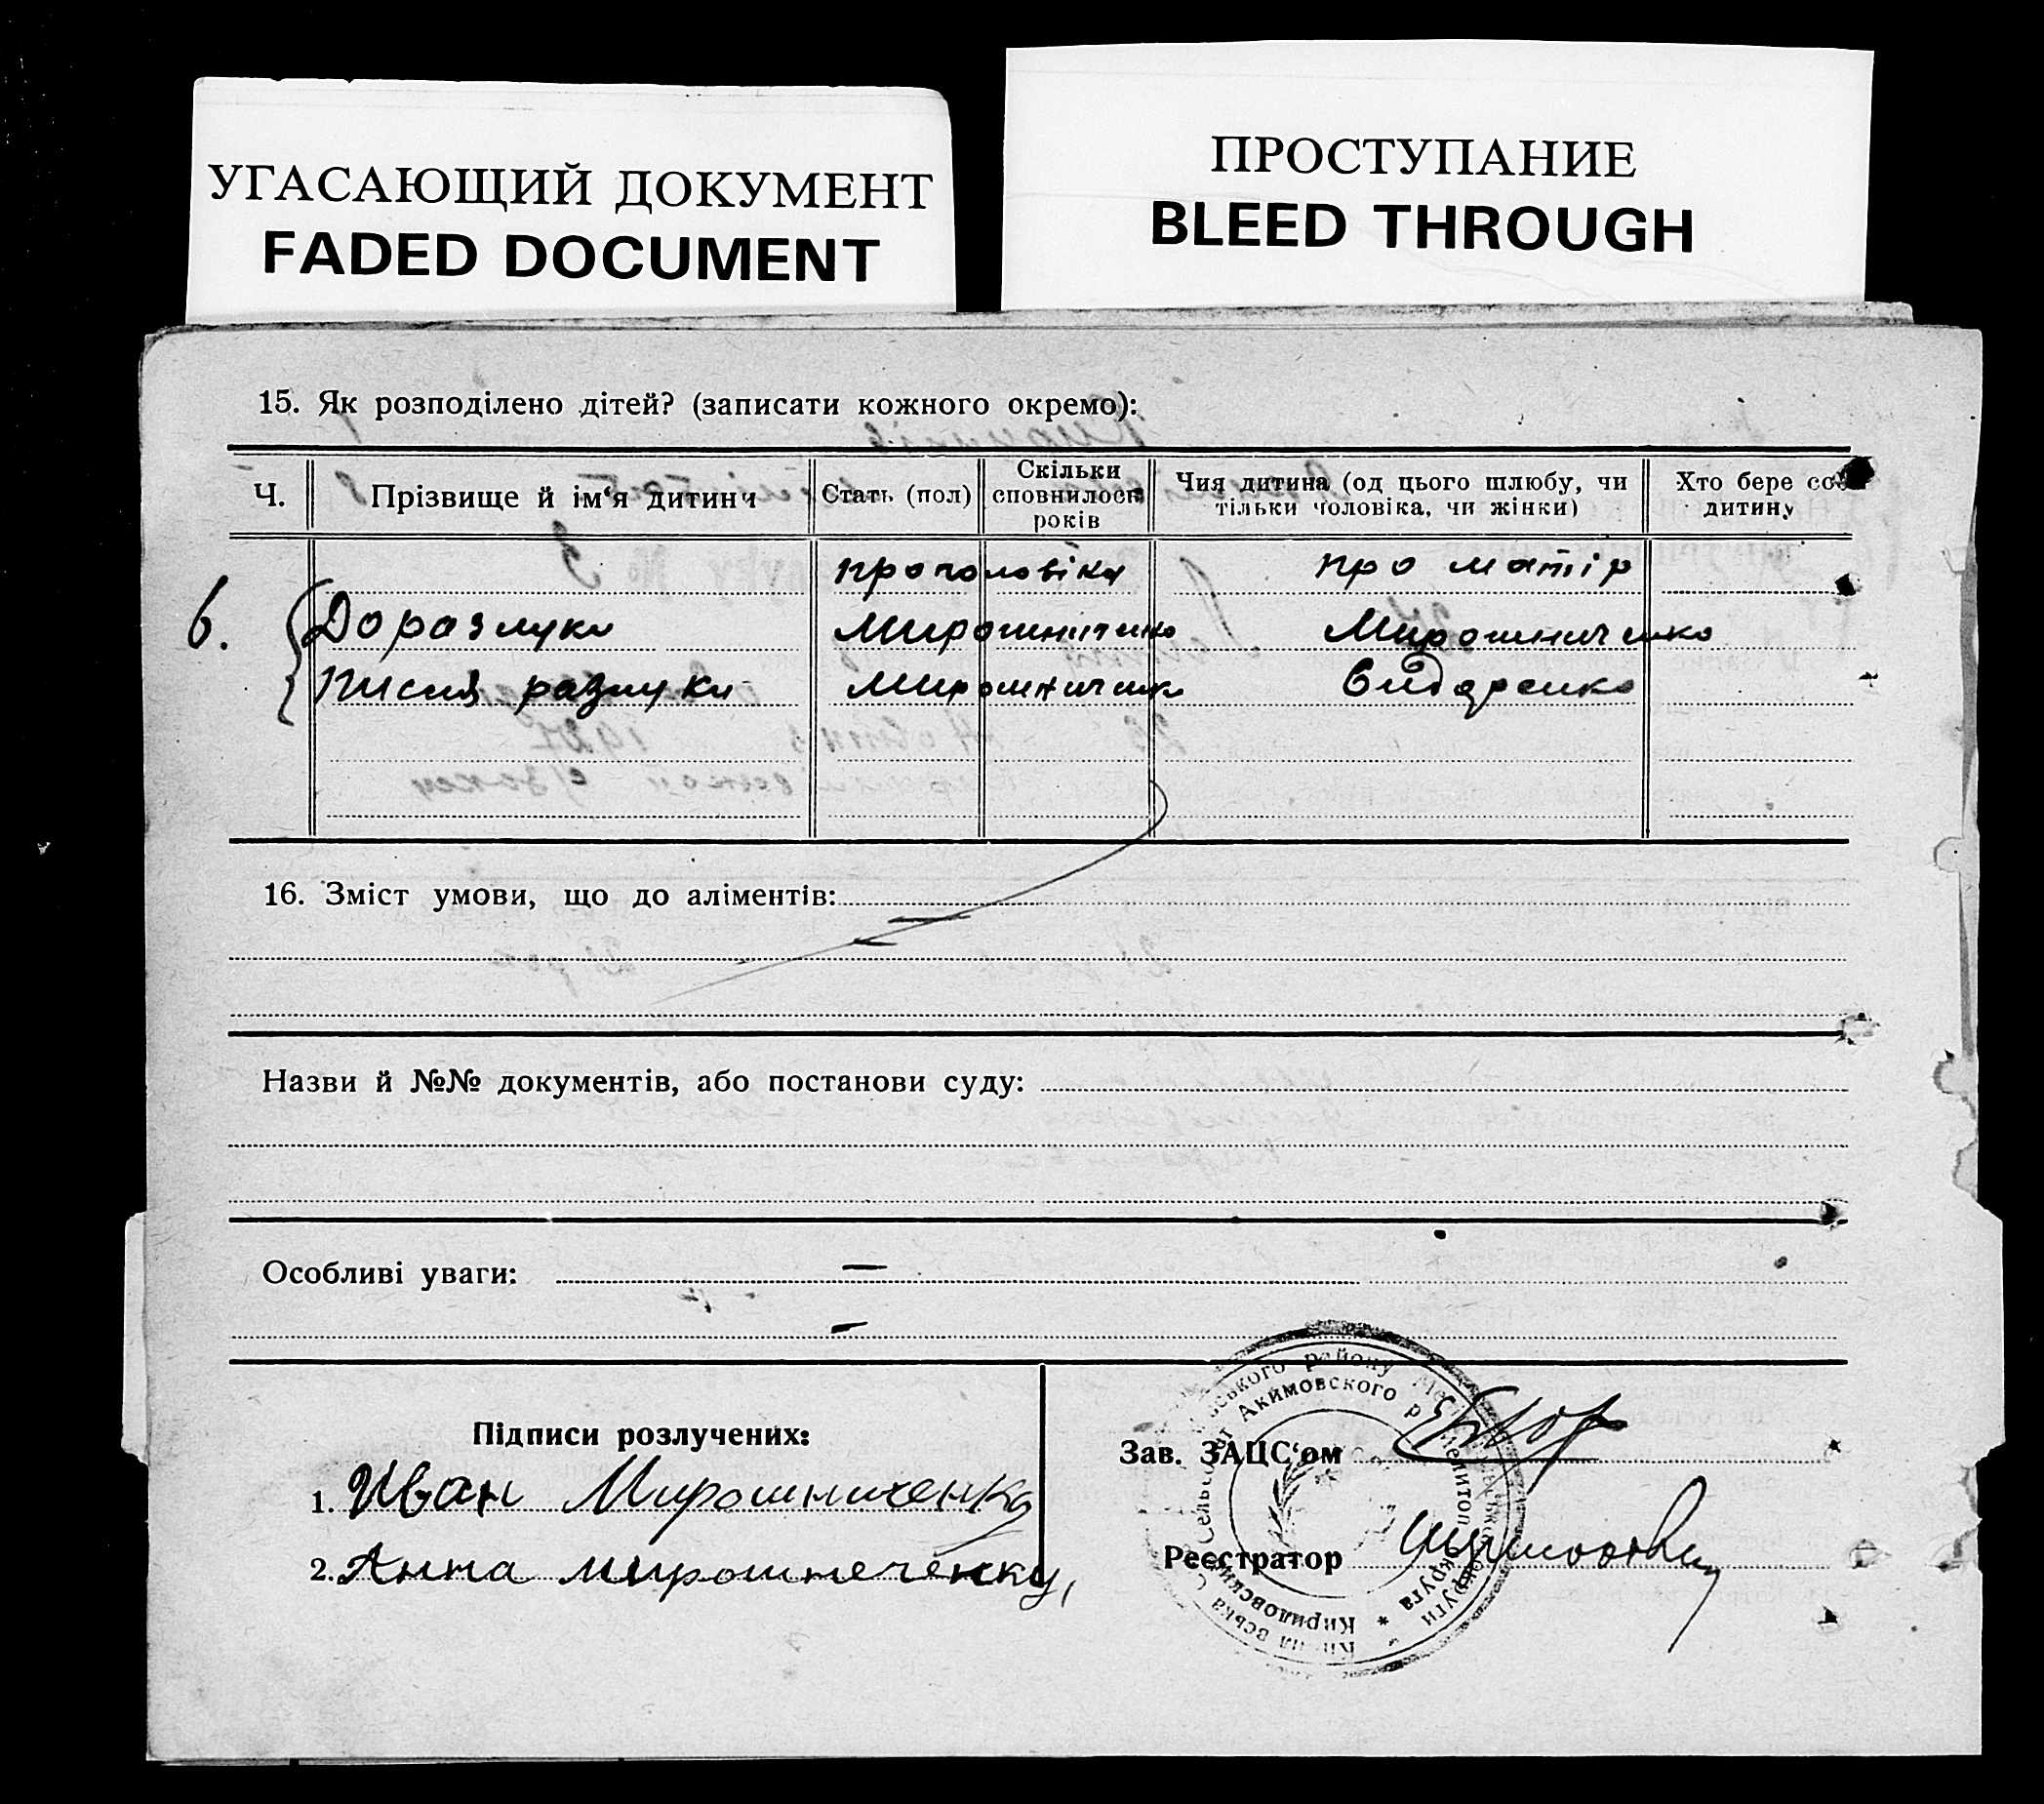 УГАСАЮЩИЙ ДОКУМЕНТ
FADED DOCUMENT
ПРОСТУПАНИЕ
BLEED THROUGH
15. Як розподілено дітей? (записати кожного окремо):
Ч.
Прізвище й ім‘я дитини
Стать (пол)
Скільки сповнилося років
Чия дитина (од цього шлюбу, чи тільки чоловіка, чи жінки)
Хто бере со дитину
про чоловіка про матір
6. До разлуки Мирошниченко Мирошниченко
писля разлуки Мирошниченко Сидоренко
16. Зміст умови, що до аліментів:
Назви й №№ документів, або постанови суду:
Особливі уваги:
Підписи розлучених:
1. Иван Мирошниченко
2. Анна мирошнеченку,
Зав. ЗАЦС‘ом
Реєстратор
ського району
Акимовского р
Мелитоп округа * Кириловский Сельсо
округи